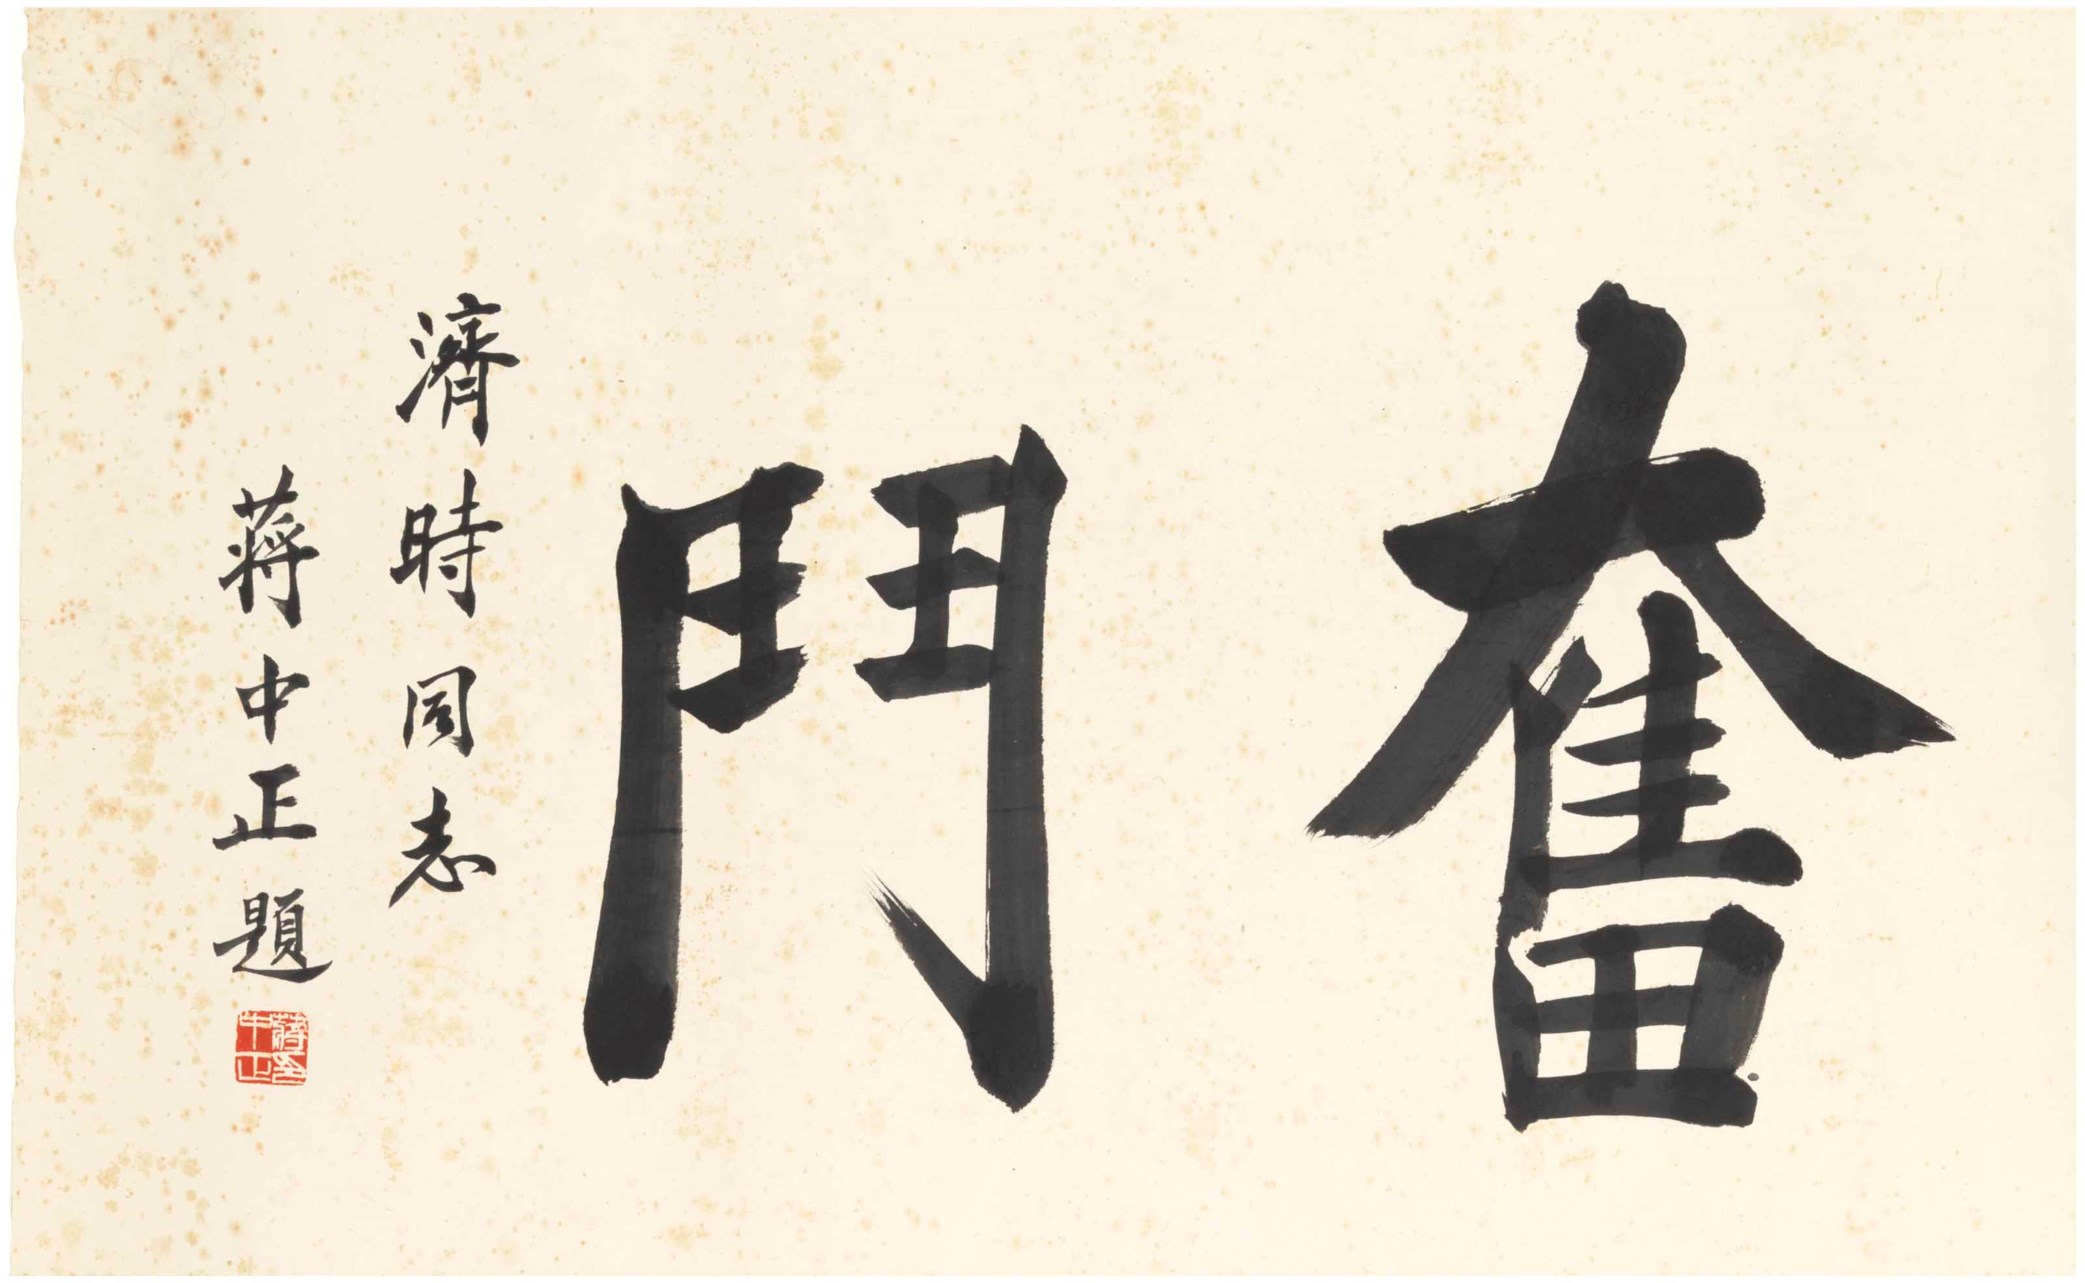 奮鬥
濟時同志
蔣中正題
蔣中正印